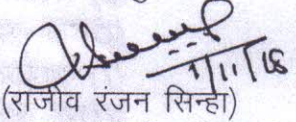 1/11/18
(राजीव रंजन सिन्हा)